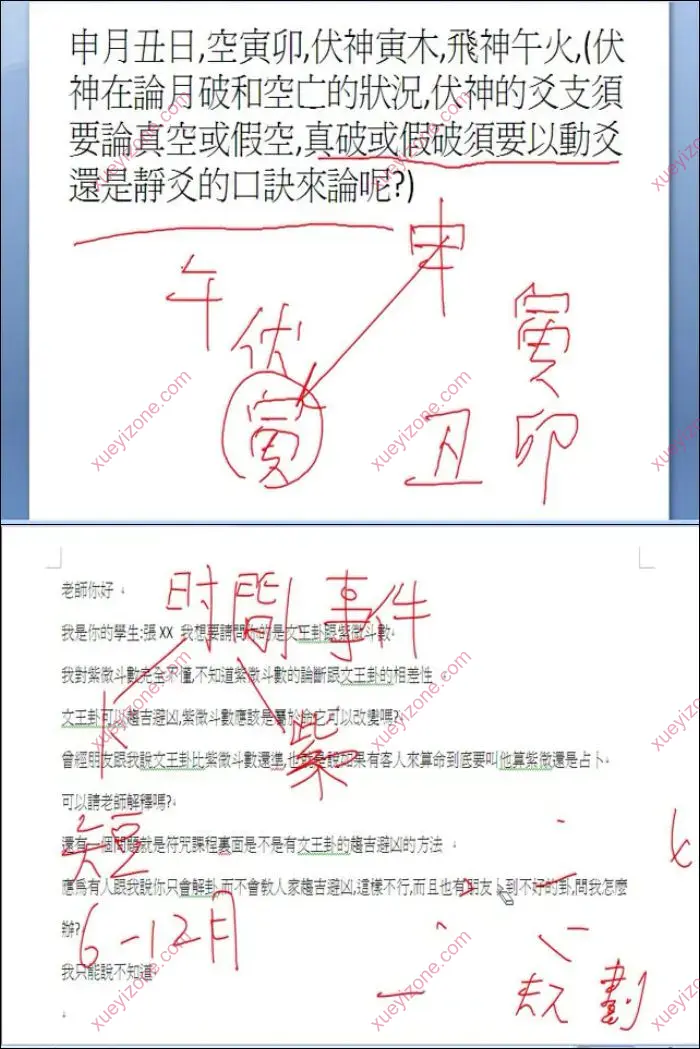 申月丑日,空寅卯,伏神寅木,飛神午火,(伏
神在論月破和空亡的狀況,伏神的爻支須
要論真空或假空,真破或假破須要以動爻
還是靜爻的口訣來論呢?)
申
午
伏
寅
寅
丑 卯
xueyizone.com
老師你好
时間 事件
我是你的學生:張XX 我想要請問你的是文王卦跟紫微斗數
我對紫微斗數完全不懂,不知道紫微斗數的論斷跟文王卦的相差性
文王卦可以趨吉避凶,紫微斗數應該是屬於命它可以改變嗎?
卜 紫
曾經朋友跟我說文王卦比紫微斗數還準,也就是說如果有客人來算命到底要叫他算紫微還是占卜
可以請老師解釋嗎?
還有一個問題就是符咒課程裏面是不是有文王卦的趨吉避凶的方法
短
應為有人跟我說你只會解卦,而不會教人家趨吉避凶,這樣不行,而且也有朋友卜到不好的卦,問我怎麼
辦?
6-12月
我只能說不知道
規劃
xueyizone.com